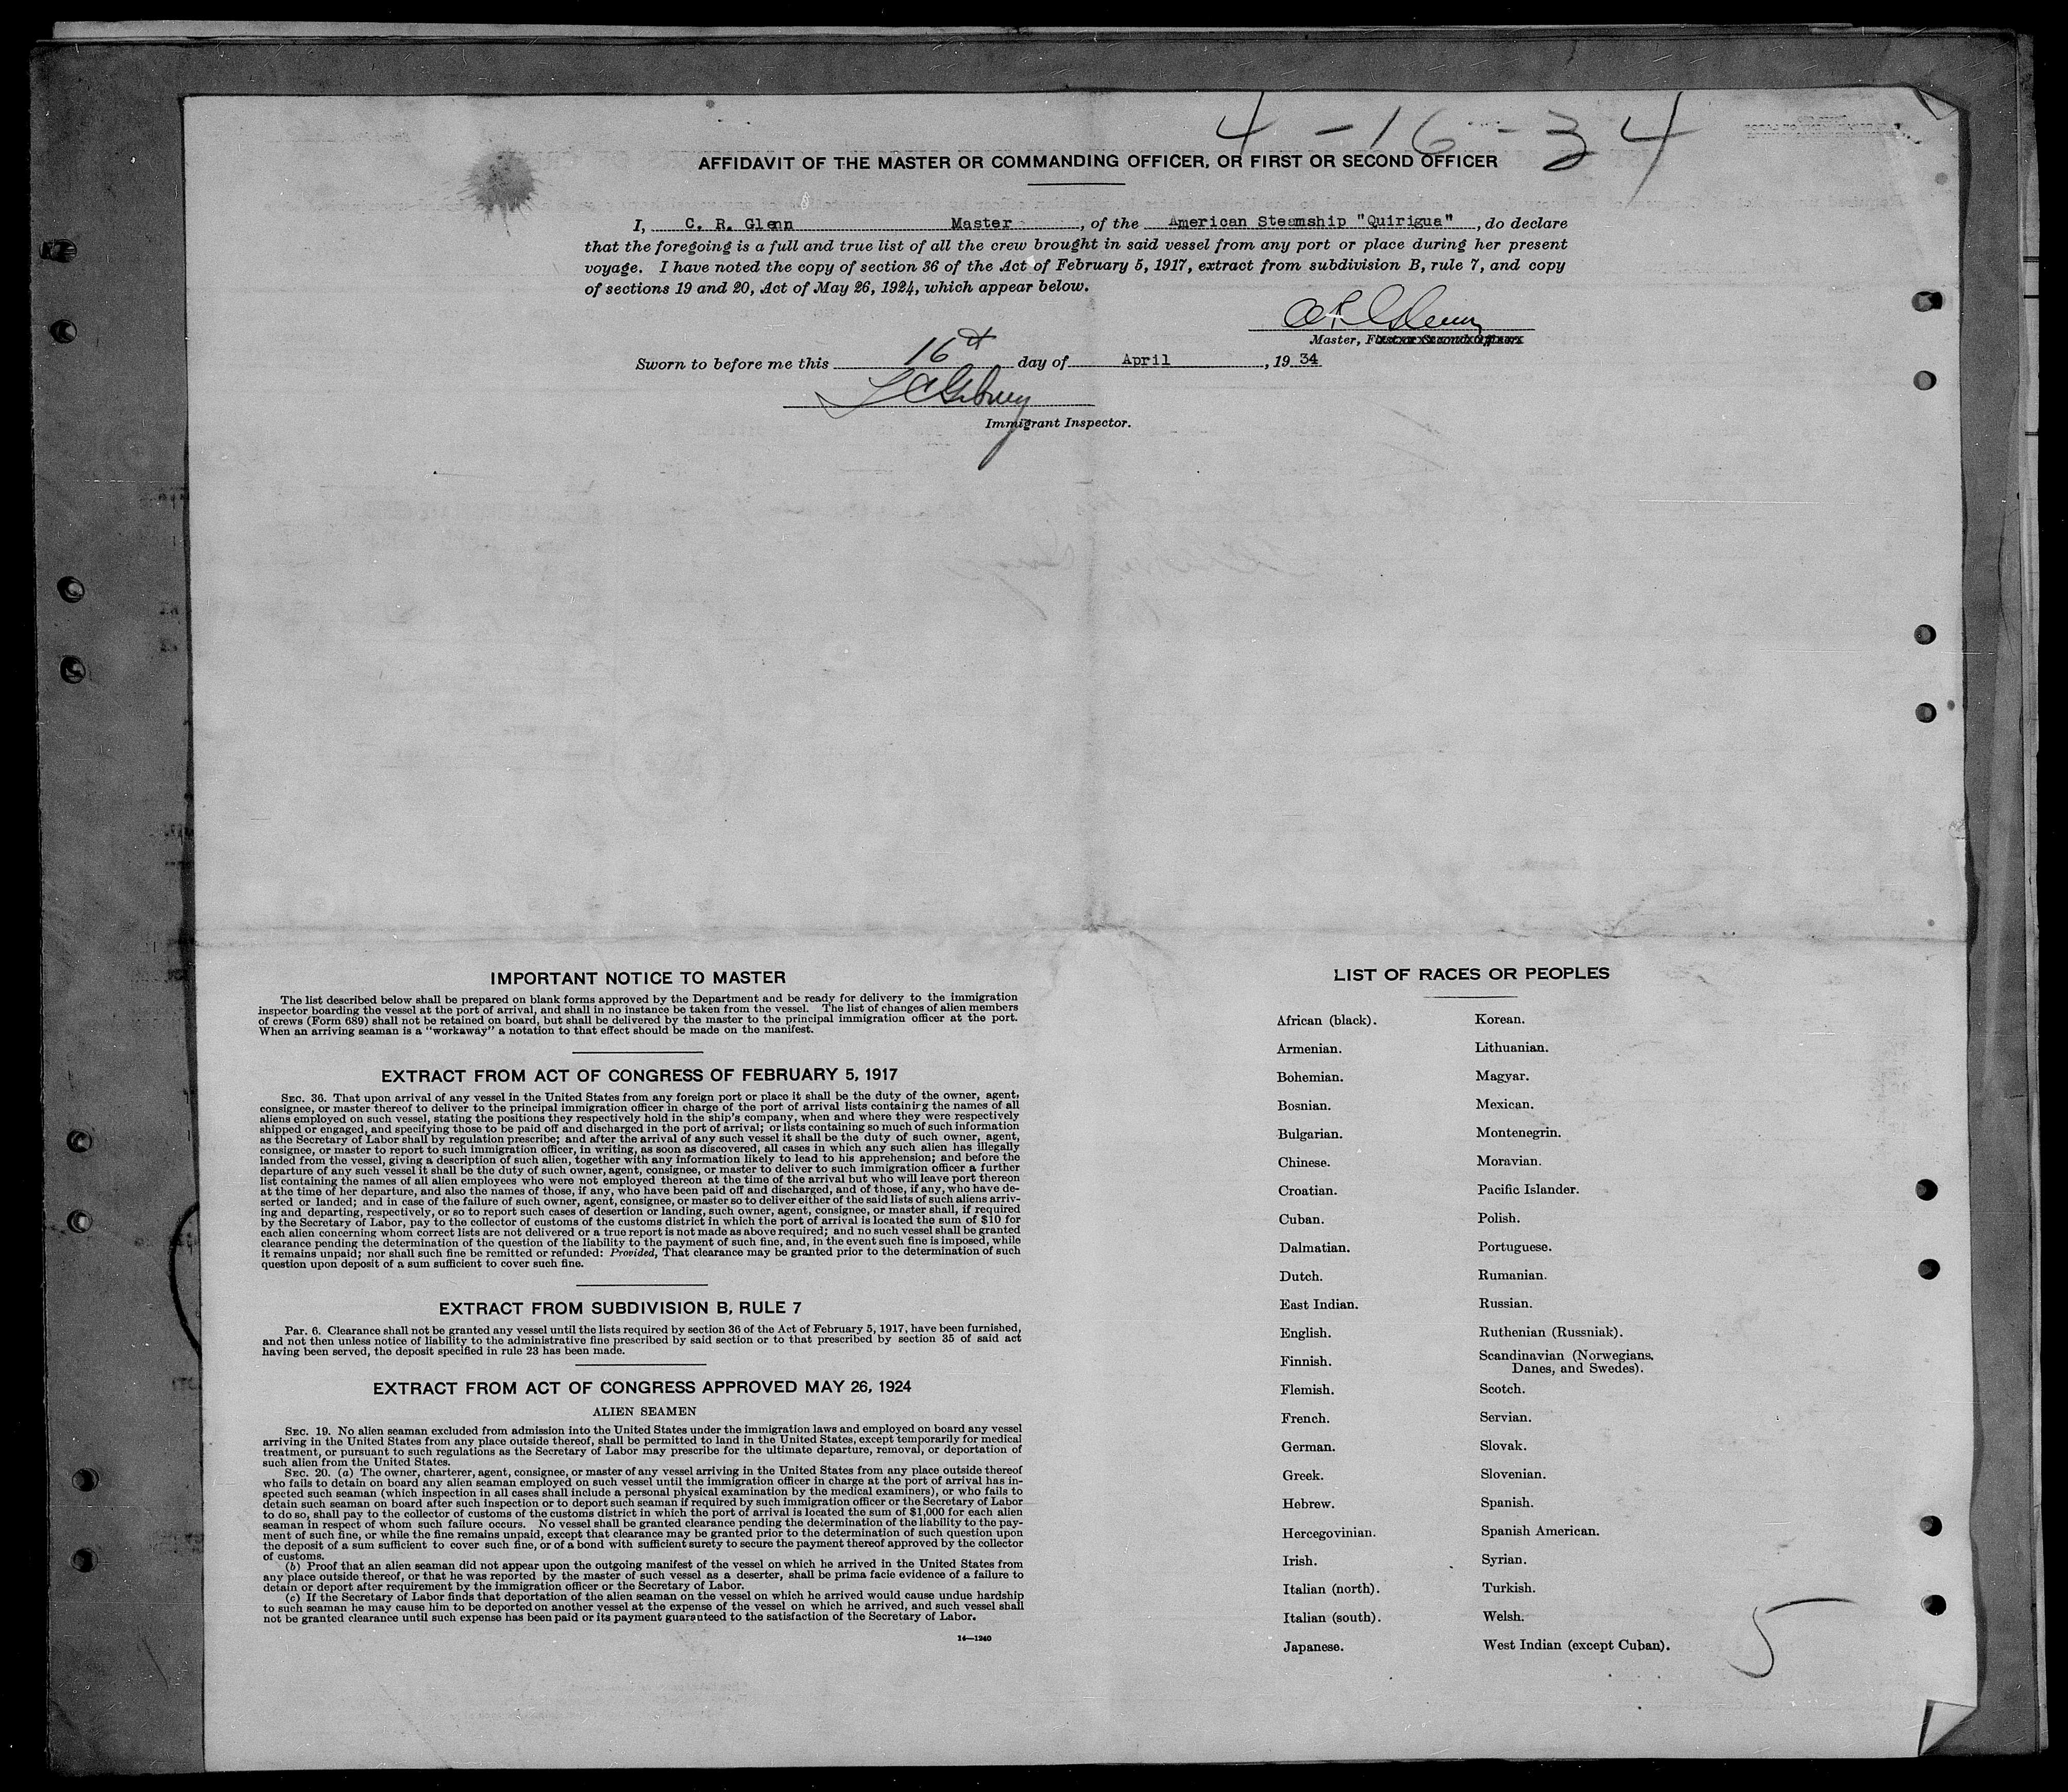 4-16-34
AFFIDAVIT OF THE MASTER OR COMMANDING OFFICER, OR FIRST OR SECOND OFFICER
I, C. R. Glenn Master, of the American Steamship "Quirigua", do declare
that the foregoing is a full and true list of all the crew brought in said vessel from any port or place during her present
voyage. I have noted the copy of section 36 of the Act of February 5, 1917, extract from subdivision B, rule 7, and copy
of sections 19 and 20, Act of May 26, 1924, which appear below.
Master, First or Second Officer.
Sworn to before me this 16th day of April, 1934
Immigrant Inspector.
IMPORTANT NOTICE TO MASTER
The list described below shall be prepared on blank forms approved by the Department and be ready for delivery to the immigration
inspector boarding the vessel at the port of arrival, and shall in no instance be taken from the vessel. The list of changes of alien members
of crews (Form 689) shall not be retained on board, but shall be delivered by the master to the principal immigration officer at the port.
When an arriving seaman is a "workaway" a notation to that effect should be made on the manifest.
EXTRACT FROM ACT OF CONGRESS OF FEBRUARY 5, 1917
SEC. 36. That upon arrival of any vessel in the United States from any foreign port or place it shall be the duty of the owner, agent,
consignee, or master thereof to deliver to the principal immigration officer in charge of the port of arrival lists containing the names of all
aliens employed on such vessel, stating the positions they respectively hold in the ship's company, when and where they were respectively
shipped or engaged, and specifying those to be paid off and discharged in the port of arrival; or lists containing so much of such information
as the Secretary of Labor shall by regulation prescribe; and after the arrival of any such vessel it shall be the duty of such owner, agent,
consignee, or master to report to such immigration officer, in writing, as soon as discovered, all cases in which any such alien has illegally
landed from the vessel, giving a description of such alien, together with any information likely to lead to his apprehension; and before the
departure of any such vessel it shall be the duty of such owner, agent, consignee, or master to deliver to such immigration officer a further
list containing the names of all alien employees who were not employed thereon at the time of the arrival but who will leave port thereon
at the time of her departure, and also the names of those, if any, who have been paid off and discharged, and of those, if any, who have de-
serted or landed; and in case of the failure of such owner, agent, consignee, or master so to deliver either of the said lists of such aliens arriv-
ing and departing, respectively, or so to report such cases of desertion or landing, such owner, agent, consignee, or master shall, if required
by the Secretary of Labor, pay to the collector of customs of the customs district in which the port of arrival is located the sum of $10 for
each alien concerning whom correct lists are not delivered or a true report is not made as above required; and no such vessel shall be granted
clearance pending the determination of the question of the liability to the payment of such fine, and, in the event such fine is imposed, while
it remains unpaid; nor shall such fine be remitted or refunded: Provided, That clearance may be granted prior to the determination of such
question upon deposit of a sum sufficient to cover such fine.
EXTRACT FROM SUBDIVISION B, RULE 7
Par. 6. Clearance shall not be granted any vessel until the lists required by section 36 of the Act of February 5, 1917, have been furnished,
and not then unless notice of liability to the administrative fine prescribed by said section or to that prescribed by section 35 of said act
having been served, the deposit specified in rule 23 has been made.
EXTRACT FROM ACT OF CONGRESS APPROVED MAY 26, 1924
ALIEN SEAMEN
SEC. 19. No alien seaman excluded from admission into the United States under the immigration laws and employed on board any vessel
arriving in the United States from any place outside thereof, shall be permitted to land in the United States, except temporarily for medical
treatment, or pursuant to such regulations as the Secretary of Labor may prescribe for the ultimate departure, removal, or deportation of
such alien from the United States.
SEC. 20. (a) The owner, charterer, agent, consignee, or master of any vessel arriving in the United States from any place outside thereof
who fails to detain on board any alien seaman employed on such vessel until the immigration officer in charge at the port of arrival has in-
spected such seaman (which inspection in all cases shall include a personal physical examination by the medical examiners), or who fails to
detain such seaman on board after such inspection or to deport such seaman if required by such immigration officer or the Secretary of Labor
to do so, shall pay to the collector of customs of the customs district in which the port of arrival is located the sum of $1,000 for each alien
seaman in respect of whom such failure occurs. No vessel shall be granted clearance pending the determination of the liability to the pay-
ment of such fine, or while the fine remains unpaid, except that clearance may be granted prior to the determination of such question upon
the deposit of a sum sufficient to cover such fine, or of a bond with sufficient surety to secure the payment thereof approved by the collector
of customs.
(b) Proof that an alien seaman did not appear upon the outgoing manifest of the vessel on which he arrived in the United States from
any place outside thereof, or that he was reported by the master of such vessel as a deserter, shall be prima facie evidence of a failure to
detain or deport after requirement by the immigration officer or the Secretary of Labor.
(c) If the Secretary of Labor finds that deportation of the alien seaman on the vessel on which he arrived would cause undue hardship
to such seaman he may cause him to be deported on another vessel at the expense of the vessel on which he arrived, and such vessel shall
not be granted clearance until such expense has been paid or its payment guaranteed to the satisfaction of the Secretary of Labor.
14—1240
LIST OF RACES OR PEOPLES
African (black). Korean.
Armenian. Lithuanian.
Bohemian. Magyar.
Bosnian. Mexican.
Bulgarian. Montenegrin.
Chinese. Moravian.
Croatian. Pacific Islander.
Cuban. Polish.
Dalmatian. Portuguese.
Dutch. Rumanian.
East Indian. Russian.
English. Ruthenian (Russniak).
Finnish. Scandinavian (Norwegians,
Danes, and Swedes).
Flemish. Scotch.
French. Servian.
German. Slovak.
Greek. Slovenian.
Hebrew. Spanish.
Hercegovinian. Spanish American.
Irish. Syrian.
Italian (north). Turkish.
Italian (south). Welsh.
Japanese. West Indian (except Cuban).
5